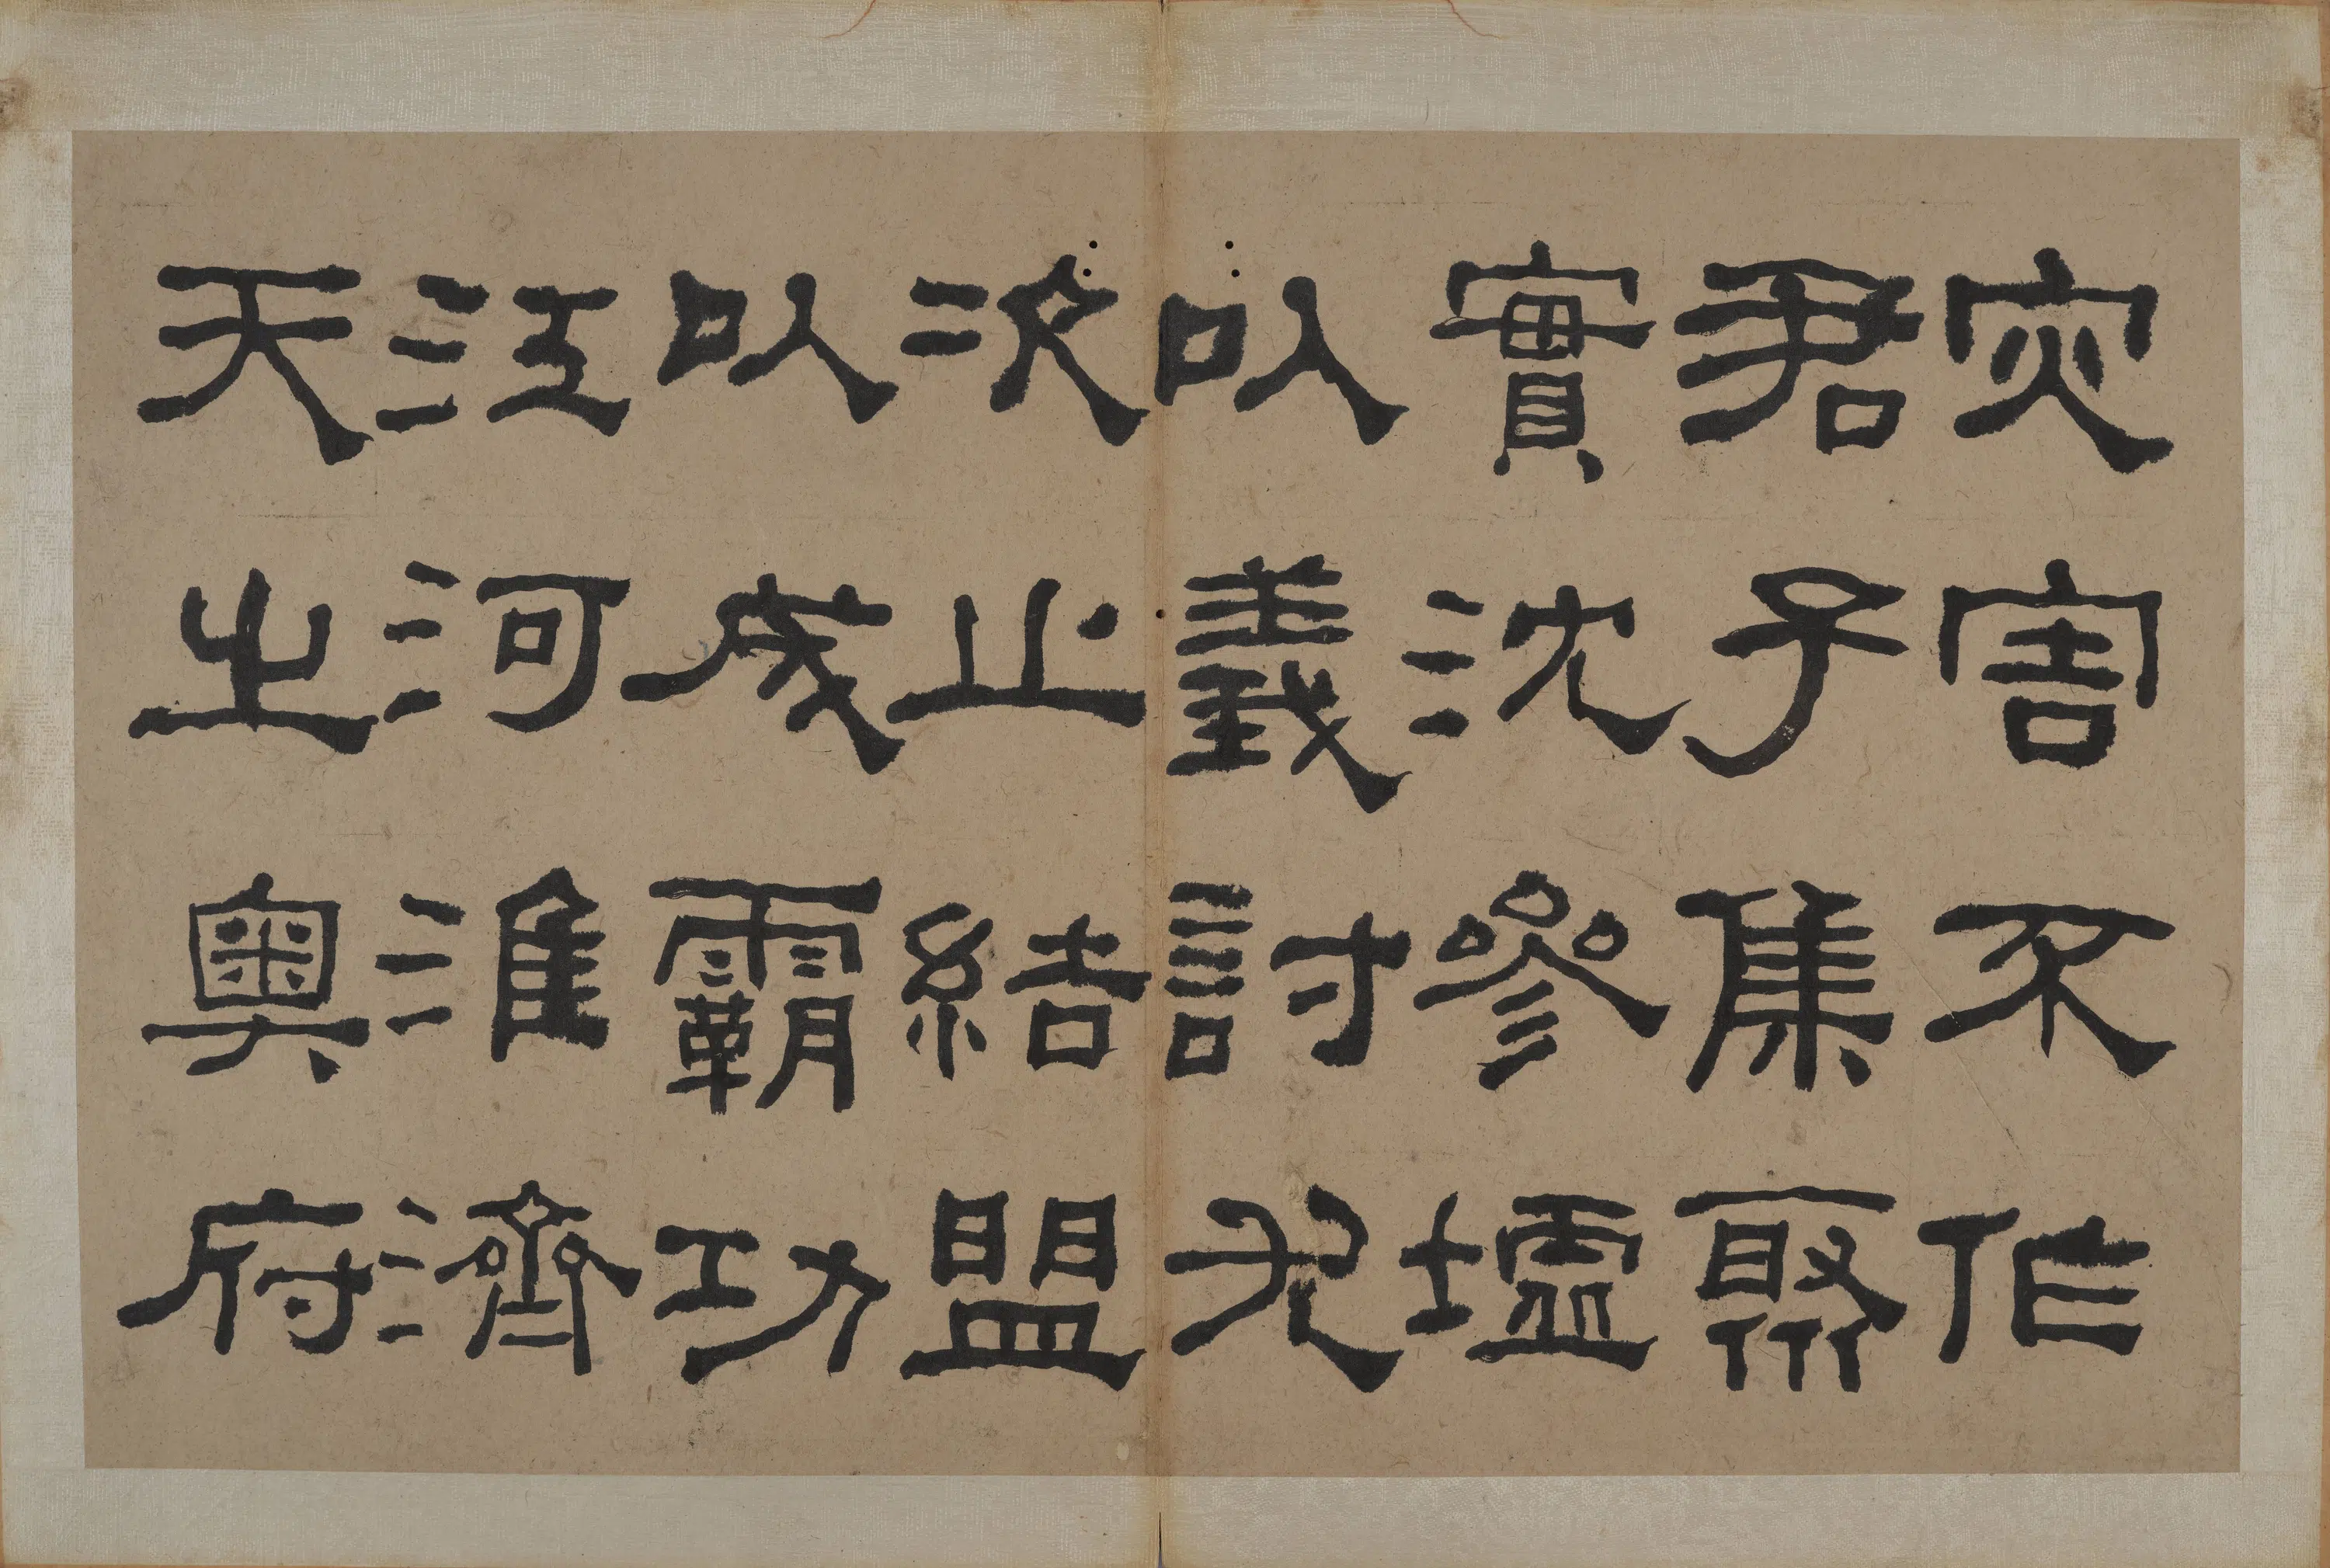 灾害不作
君子集聚
實沈參墟
以義討尤
次止結盟
以成霸功
江河淮濟
天之奧府